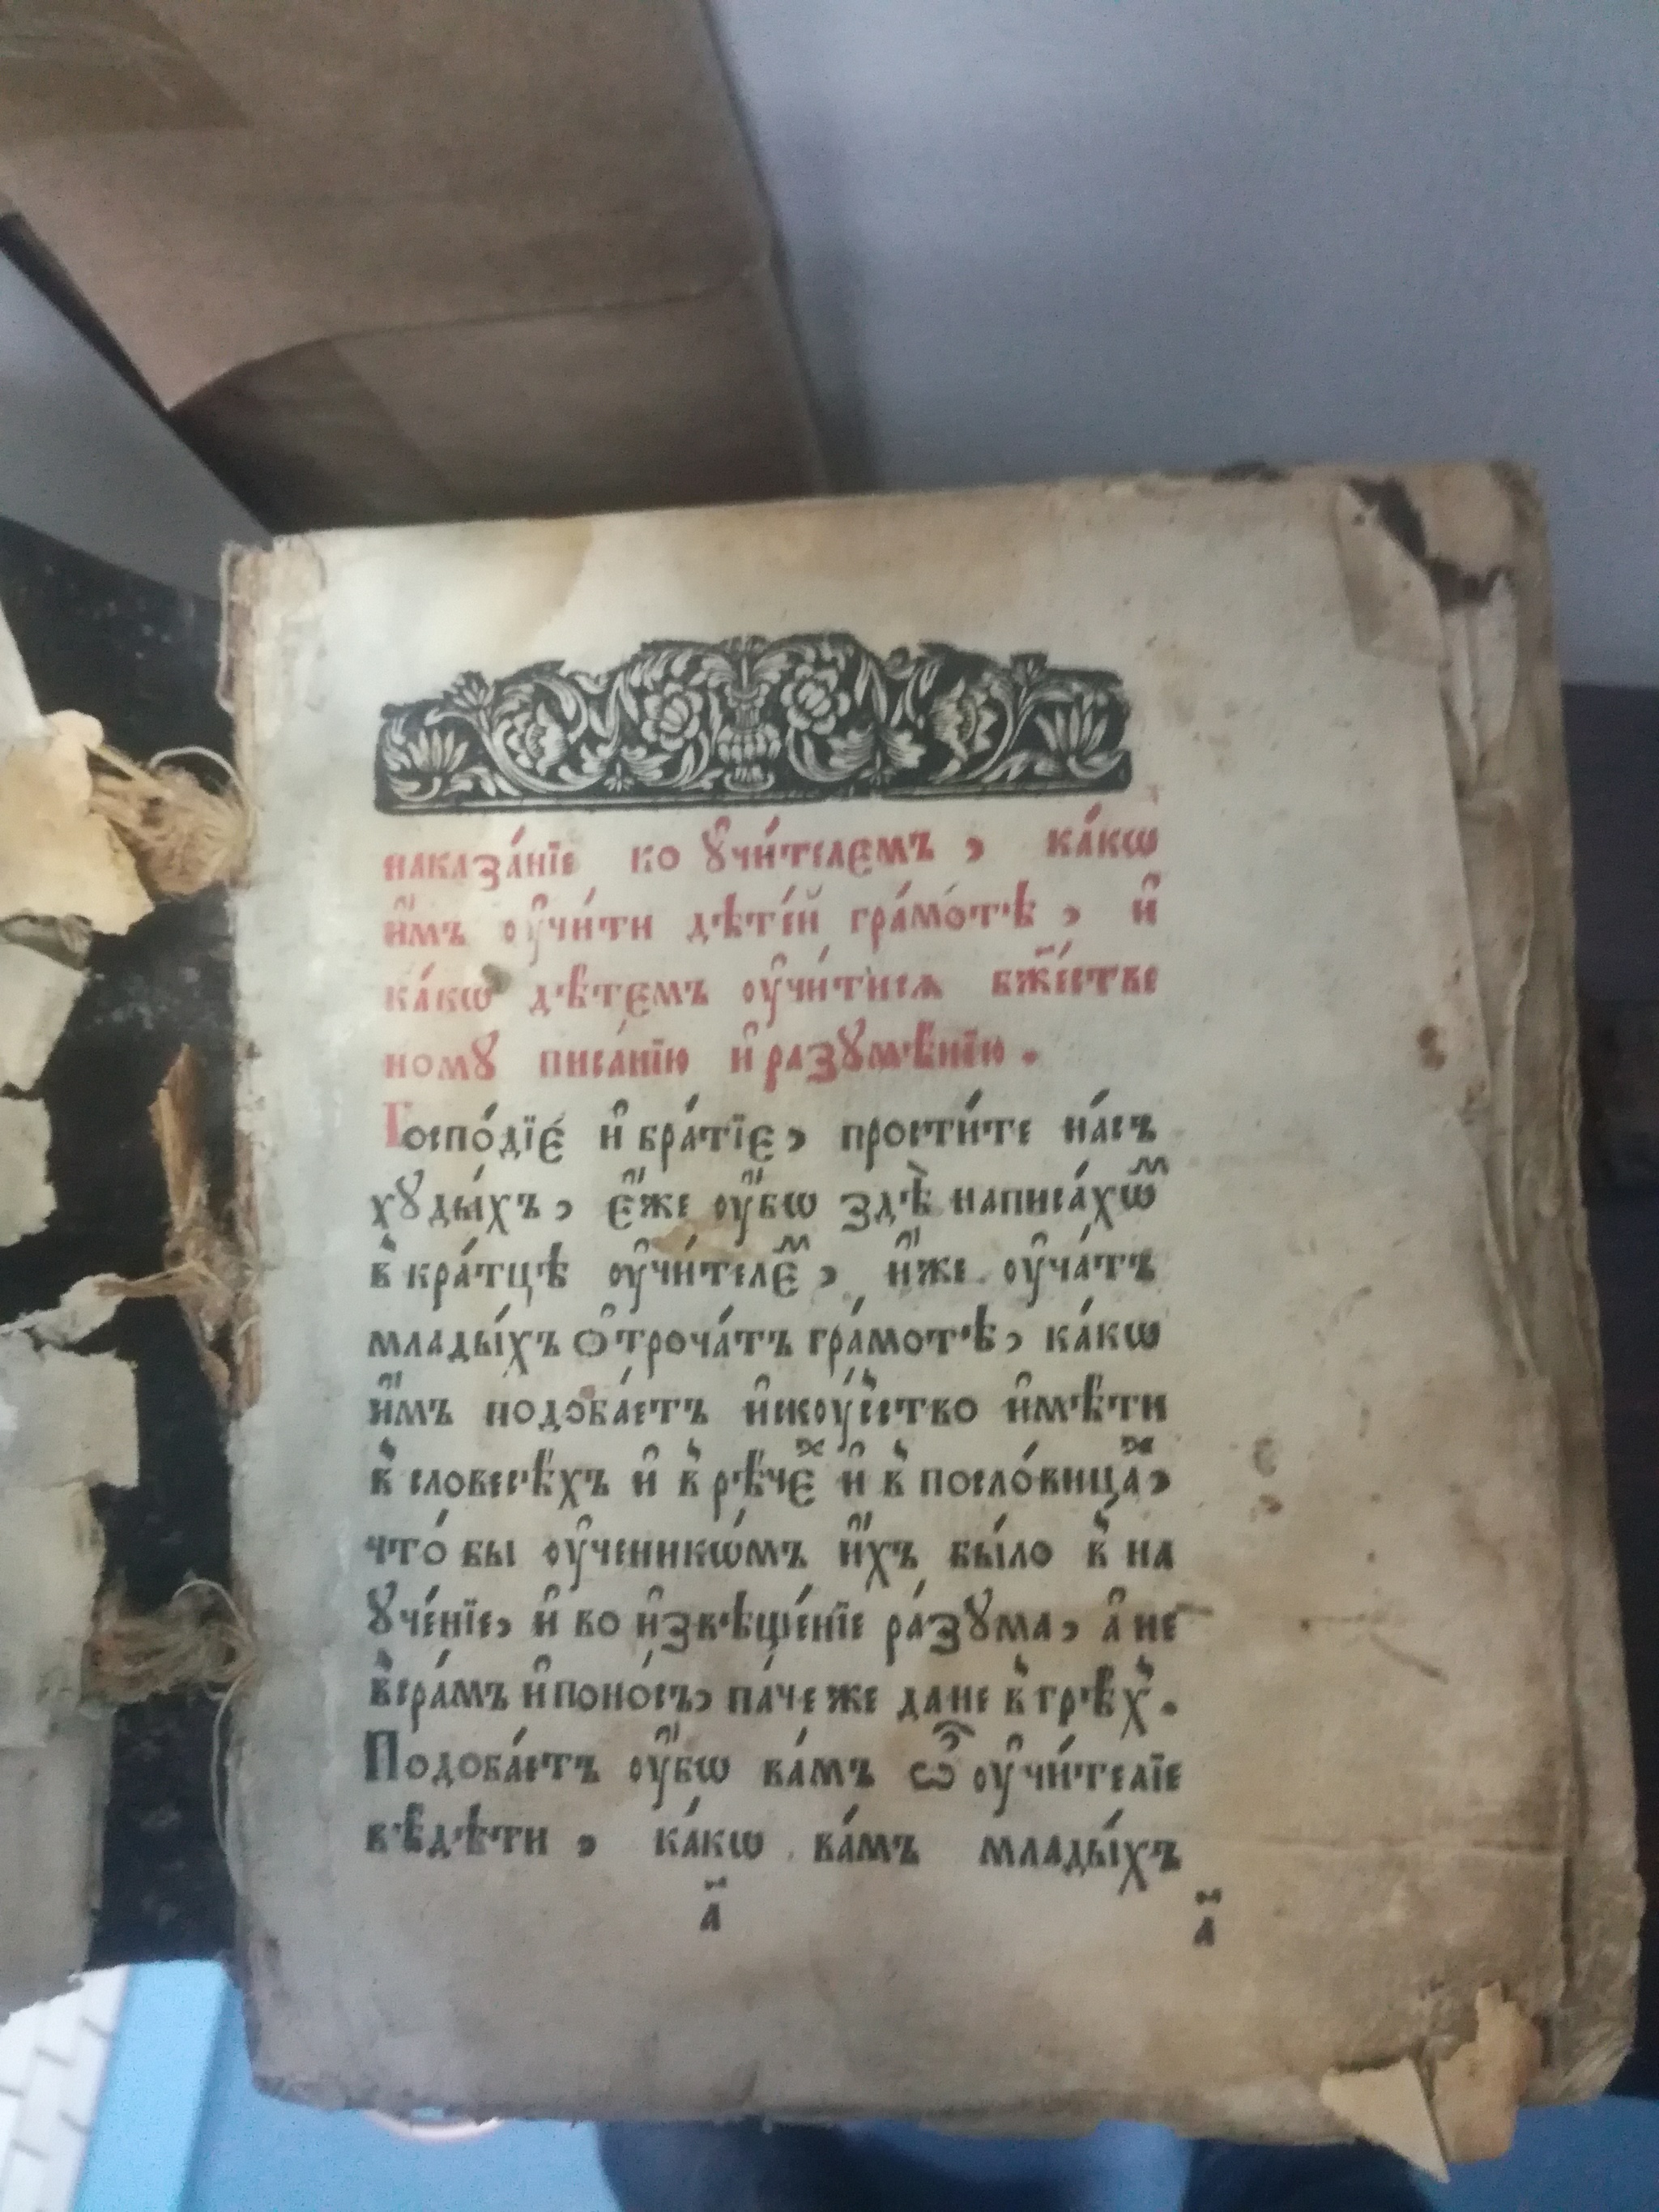 наказа́нїе ко ᲂу҆чи́телємъ, ка́кѡ
и҆̀мъ ᲂу҆чи́ти дѣте́й гра́мотѣ, и҆
ка́кѡ дѣ́тємъ ᲂу҆чи́тисѧ бж҃е́стве
номꙋ писа́нїю и҆ разꙋмѣ́нїю.
Госпо́дїє и҆ бра́тїє, прости́те на́съ
хꙋды́хъ, є҆́же ᲂу҆́бѡ здѣ̀ написа́хѡⷨ
в҆ кра́тцѣ ᲂу҆чи́телєⷨ, и҆́же ᲂу҆ча́тъ
млады́хъ ѻ҆троча́тъ гра́мотѣ, ка́кѡ
и҆́мъ подоба́етъ и҆скоу́сство и҆мѣ́ти
в҆ словесѣ́хъ и҆ в҆ рѣ́чєⷯ и҆ в҆ посло́вицаⷯ,
что́ бы ᲂу҆ченикѡ́мъ и҆́хъ бы́ло в҆ на
ꙋче́нїе, и҆ во и҆звѣще́нїе ра́зꙋма, а҆ не
в҆ сра́мъ и҆ поно́съ, па́че же да не в҆ грѣ́х.
Подоба́етъ ᲂу҆́бѡ ва́мъ ѽ ᲂу҆чи́телїе
вѣ́дѣти, ка́кѡ ва́мъ млады́хъ
а҃ а҃